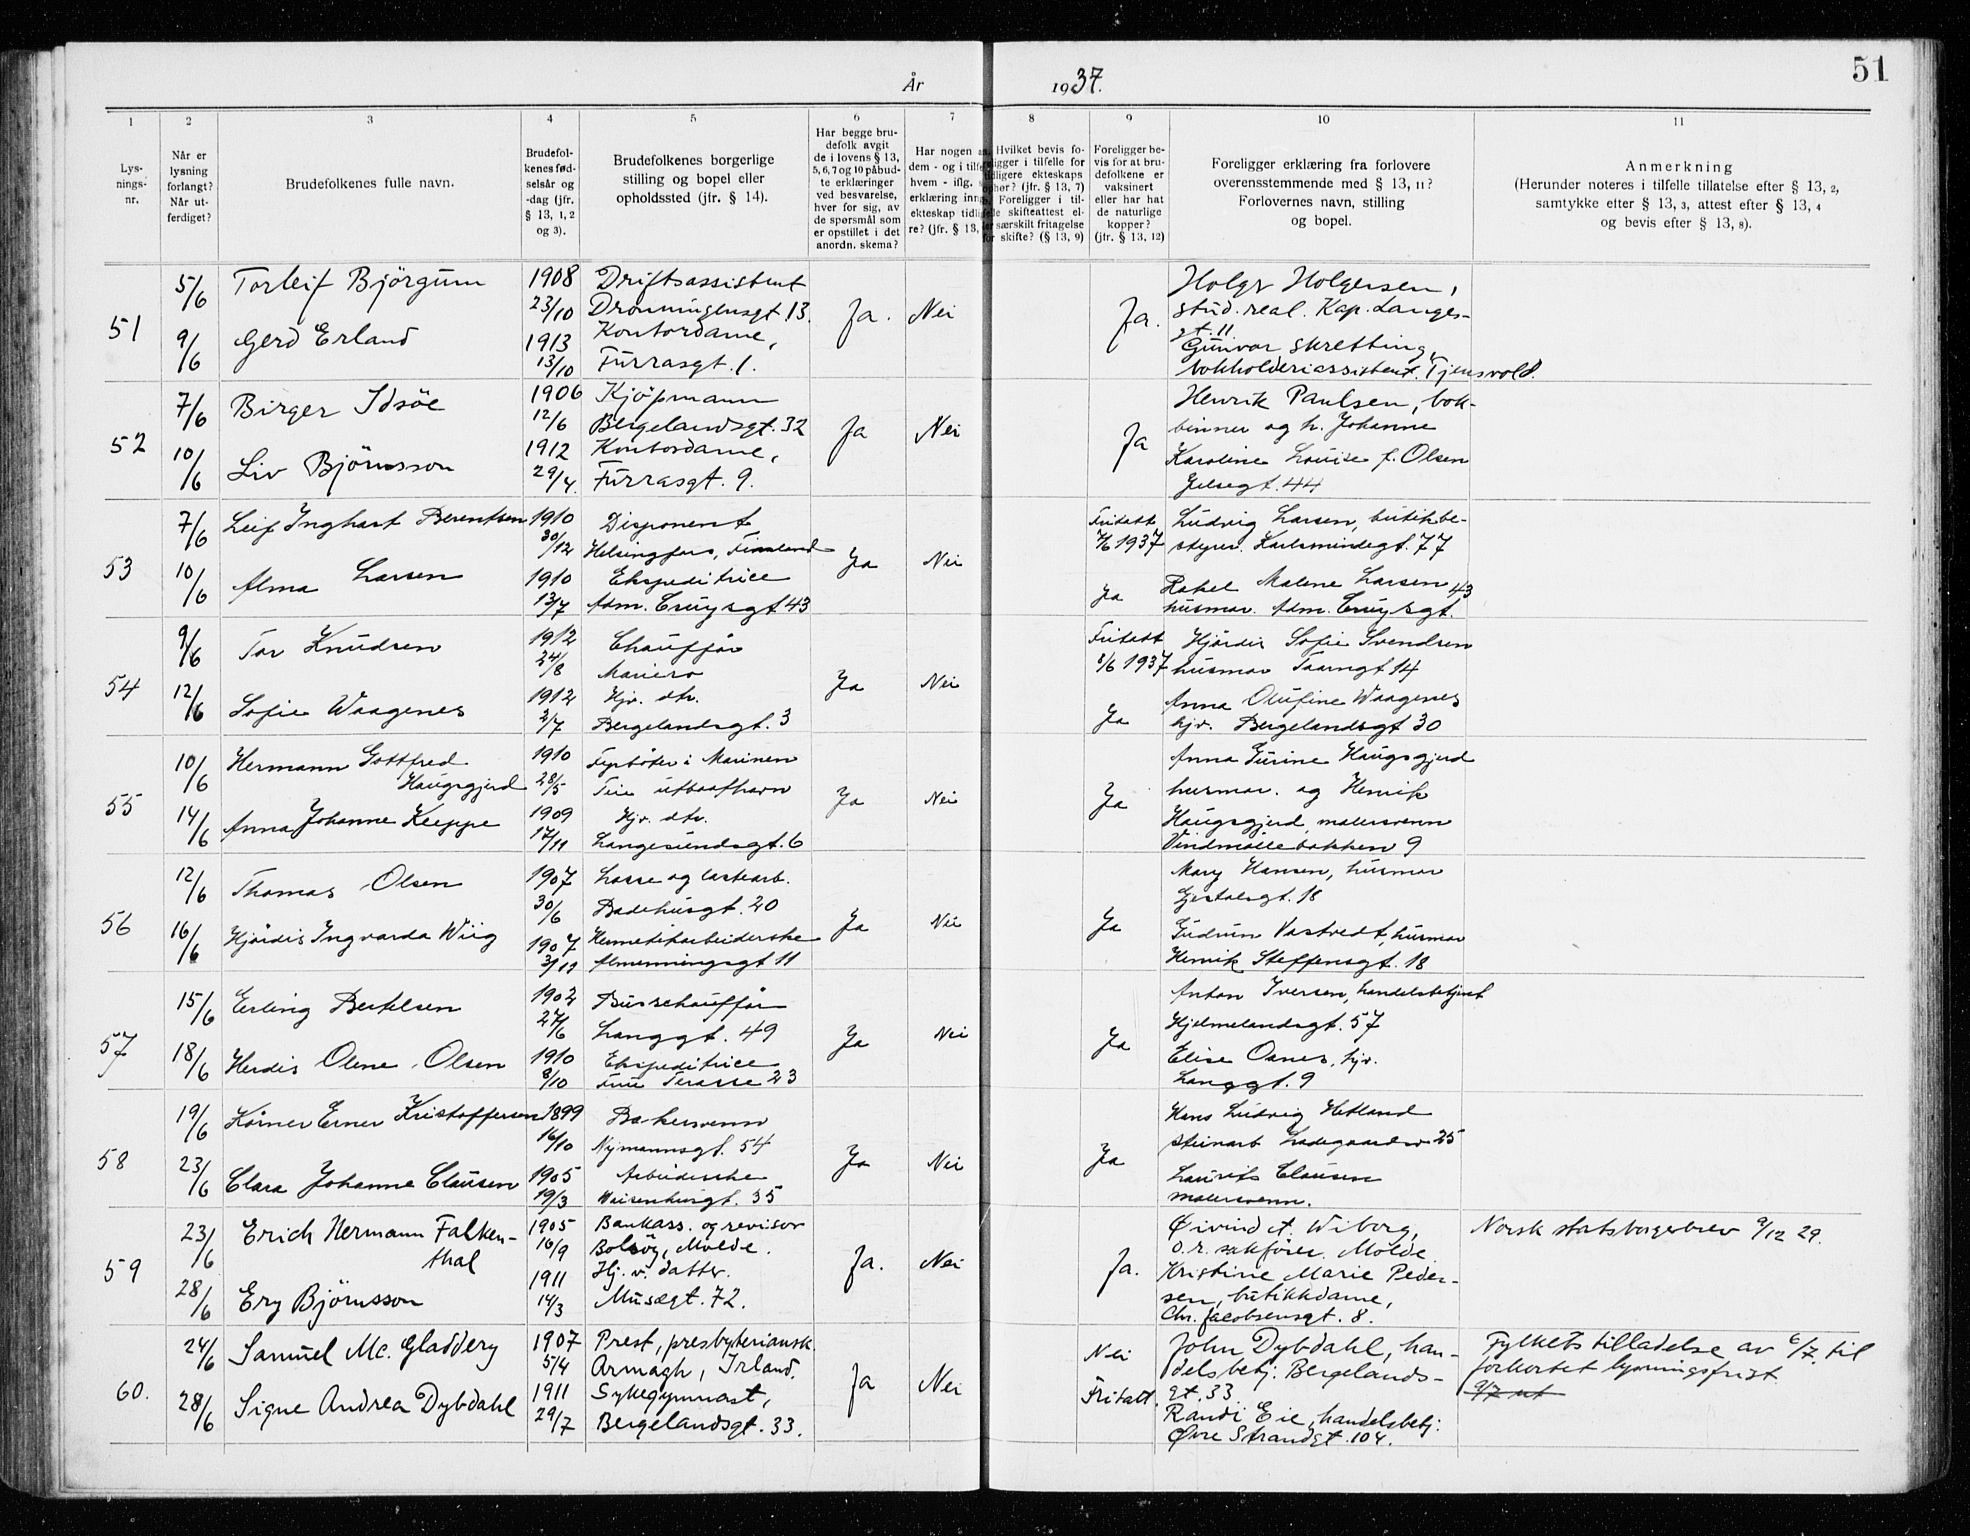 År 1937.
51
1 2 3 4 5 6 7 8 9 10 11
Lys-
nings-
nr.
Når er
lysning
forlangt?
Når ut-
ferdiget?
Brudefolkenes fulle navn.
Brudefol-
kenes fød-
selsår og
-dag (jfr.
§ 13, 1, 2
og 3).
Brudefolkenes borgerlige
stilling og bopel eller
opholdssted (jfr. § 14).
Har begge bru-
defolk avgit
de i lovens § 13,
5, 6, 7 og 10 påbud-
te erklæringer
ved besvarelse,
hver for sig, av
de spørsmål som
er opstillet i det
anordn. skema?
Har nogen av
dem - og i tilfe
hvem - iflg.
erklæring inng
ekteskap tidlig
re? (jfr. § 13,
Hvilket bevis fo-
religger i tilfelle for
tidligere ekteskaps
ophør? (jfr. § 13, 7)
Foreligger i til-
felle skifteattest el-
ler særskilt fritagelse
for skifte? (§ 13, 9)
Foreligger be-
vis for at bru-
defolkene er
vaksinert
eller har hat
de naturlige
kopper?
(jfr. § 13, 12)
Foreligger erklæring fra forlovere
overensstemmende med § 13, 11?
Forlovernes navn, stilling
og bopel.
Anmerkning
(Herunder noteres i tilfelle tillatelse efter § 13, 2,
samtykke efter § 13, 3, attest efter § 13, 4
og bevis efter § 13, 8).
51
5/6 Torleif Björgum 1908 Driftsassistent
23/10 Dronningensgt. 13.
9/6 Gerd Erland 1913 Kontordame,
13/10 Furrasgt. 1.
Ja. Nei Ja.
Holgr Holgersen,
stud. real. Kap. Langes-
gt. 11
Gunvor Skretting,
bokholderiassistent. Tjensvold.
52
7/6 Birger Idsöe 1906 Kjöpmann
12/6 Bergelandsgt. 32
10/6 Liv Björnsson 1912 Kontordame,
29/4. Furrasgt. 9.
Ja Nei Ja
Henrik Paulsen, bok-
binner og h. Johanne
Karoline Louise f. Olsen
Jelsegt. 44
53
7/6 Leif Inghart Berentsen 1910 Disponent
30/12 Helsingfors, Finnland
10/6 Alma Larsen 1910 Ekspeditrice
13/7 Adm. Cruysgt 43
Ja Nei
Fritatt
7/6 1937
Ja
Ludvig Larsen, butikbe-
styrer. Karlsmindegt. 77
Rakel Malene Larsen
husmor. Adm. Cruysgt. 43
54
9/6 Tor Knudsen 1912 Chauffør
24/8 Mariero
12/6 Sofie Waagenes 1912 Hjv. dtr.
2/7 Bergelandsgt. 3
Ja Nei
Fritatt
8/6 1937
Ja
Hjørdis Sofie Svendsen
husmor Taarngt 14
Anna Olufine Waagenes
hjv. Bergelandsgt 30
55
10/6 Hermann Gottfred
Haugsgjerd 1910 Fyrbøter i Marinen
28/5
14/6 Anna Johanne Kleppe 1909 Hjv. dtr.
17/11 Langesundsgt. 6
Ja Nei Ja
Anna Turine Haugsgjerd
husmor. og Henrik
Haugsgjerd, malersvenn
Vindmøllebakken 9
56
12/6 Thomas Olsen 1907 Losse og lastearb.
30/6 Badehusgt. 20
16/6 Hjørdis Ingvarda Wiig 1907 Hermetikarbeiderske
3/11 Almenningsgt 11
Ja Nei Ja
Mary Hansen, husmor
Gjestalsgt. 18
Gudrun Vastvedt, husmor
Henrik Steffensgt. 18
57
15/6 Erling Bertelsen 1902 Busschauffør
27/6 Langgt. 49
18/6 Herdis Olene Olsen 1910 Ekspeditrice
8/10 Fuue Terasse 23
Ja Nei Ja
Anton Iversen, handelsbetjent
Hjelmelandsgt. 57
Elise Osnes, hjv.
Langgt. 9
58
19/6 Kørner Erner Kristoffersen 1899 Bakersvenn
16/10 Nymannsgt. 54
23/6 Clara Johanne Clausen 1905 Arbeiderske
19/3 Waisenhusgt. 35
Ja Nei Ja
Hans Ludvig Hetland
steinarb Ladegaardsv 25
Laurits Clausen
malersvenn.
59
23/6 Erich Hermann Falken-
thal 1905 Bankass. og revisor
16/9 Bolsöy, Molde.
28/6 Ery Björnsson 1911 Hj. v. datter.
14/3 Musegt. 72.
Ja. Nei Ja.
Øivind A. Wiborg,
o.r. sakfører. Molde
Kristine Marie Peder-
sen, butikkdame,
Chr. Jacobsensgt. 8.
Norsk statsborgerbrev 9/12 29.
60.
24/6 Samuel Mc. Gladdery 1907 Prest, presbyteriansk.
5/4 Armagh, Irland.
28/6 Signe Andrea Dybdahl 1911 Sykegymnast,
29/7 Bergelandsgt. 33.
Ja Nei
Nei
Fritatt.
John Dybdahl, han-
delsbetj. Bergelands-
gt. 33
Randi Eie, handelsbetj.
Øvre Strandgt. 104.
Fylkets tilladelse av 6/7. til
forkortet lysningsfrist.
9/7 ut